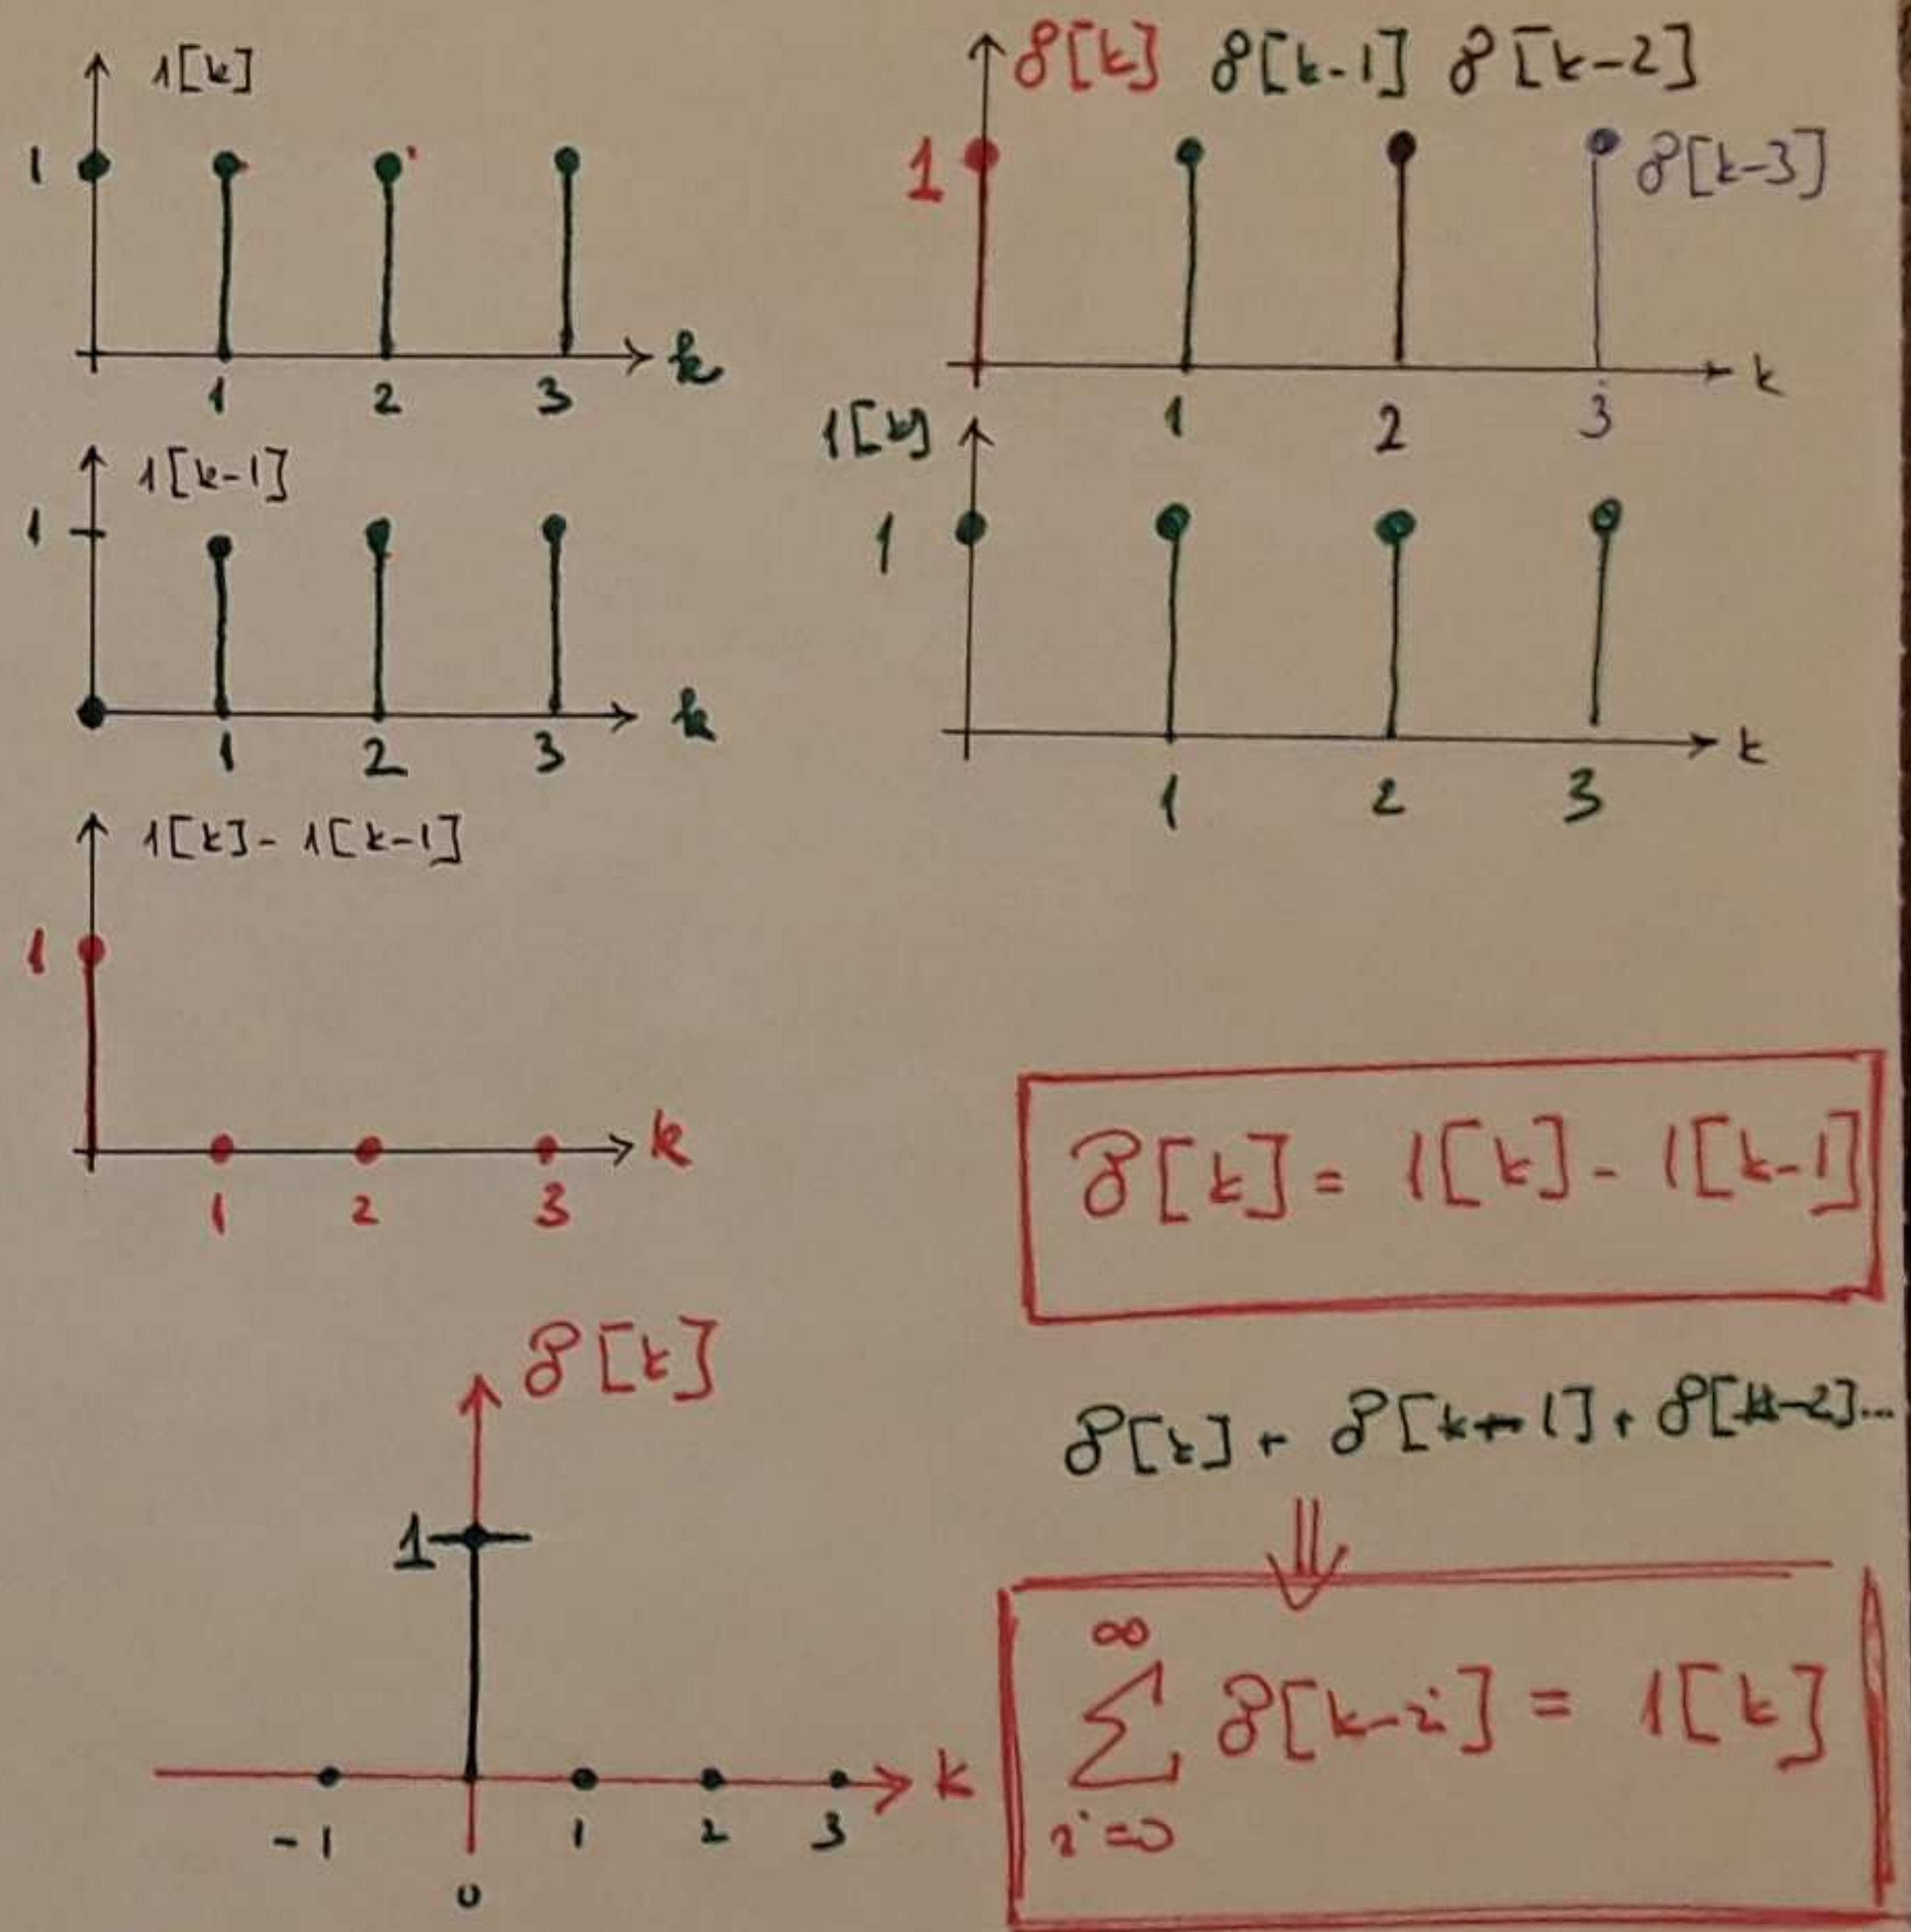 1[k]
1
1 2 3 k
1[k-1]
1
1 2 3 k
1[k]-1[k-1]
1
1 2 3 k
δ[k]
1
k
-1 0 1 2 3
δ[k] δ[k-1] δ[k-2]
1 δ[k-3]
1 2 3 k
1[k]
1
1 2 3 k
δ[k] = 1[k] - 1[k-1]
δ[k] + δ[k-1] + δ[k-2]...
⇓
∞
∑ δ[k-i] = 1[k]
i=0